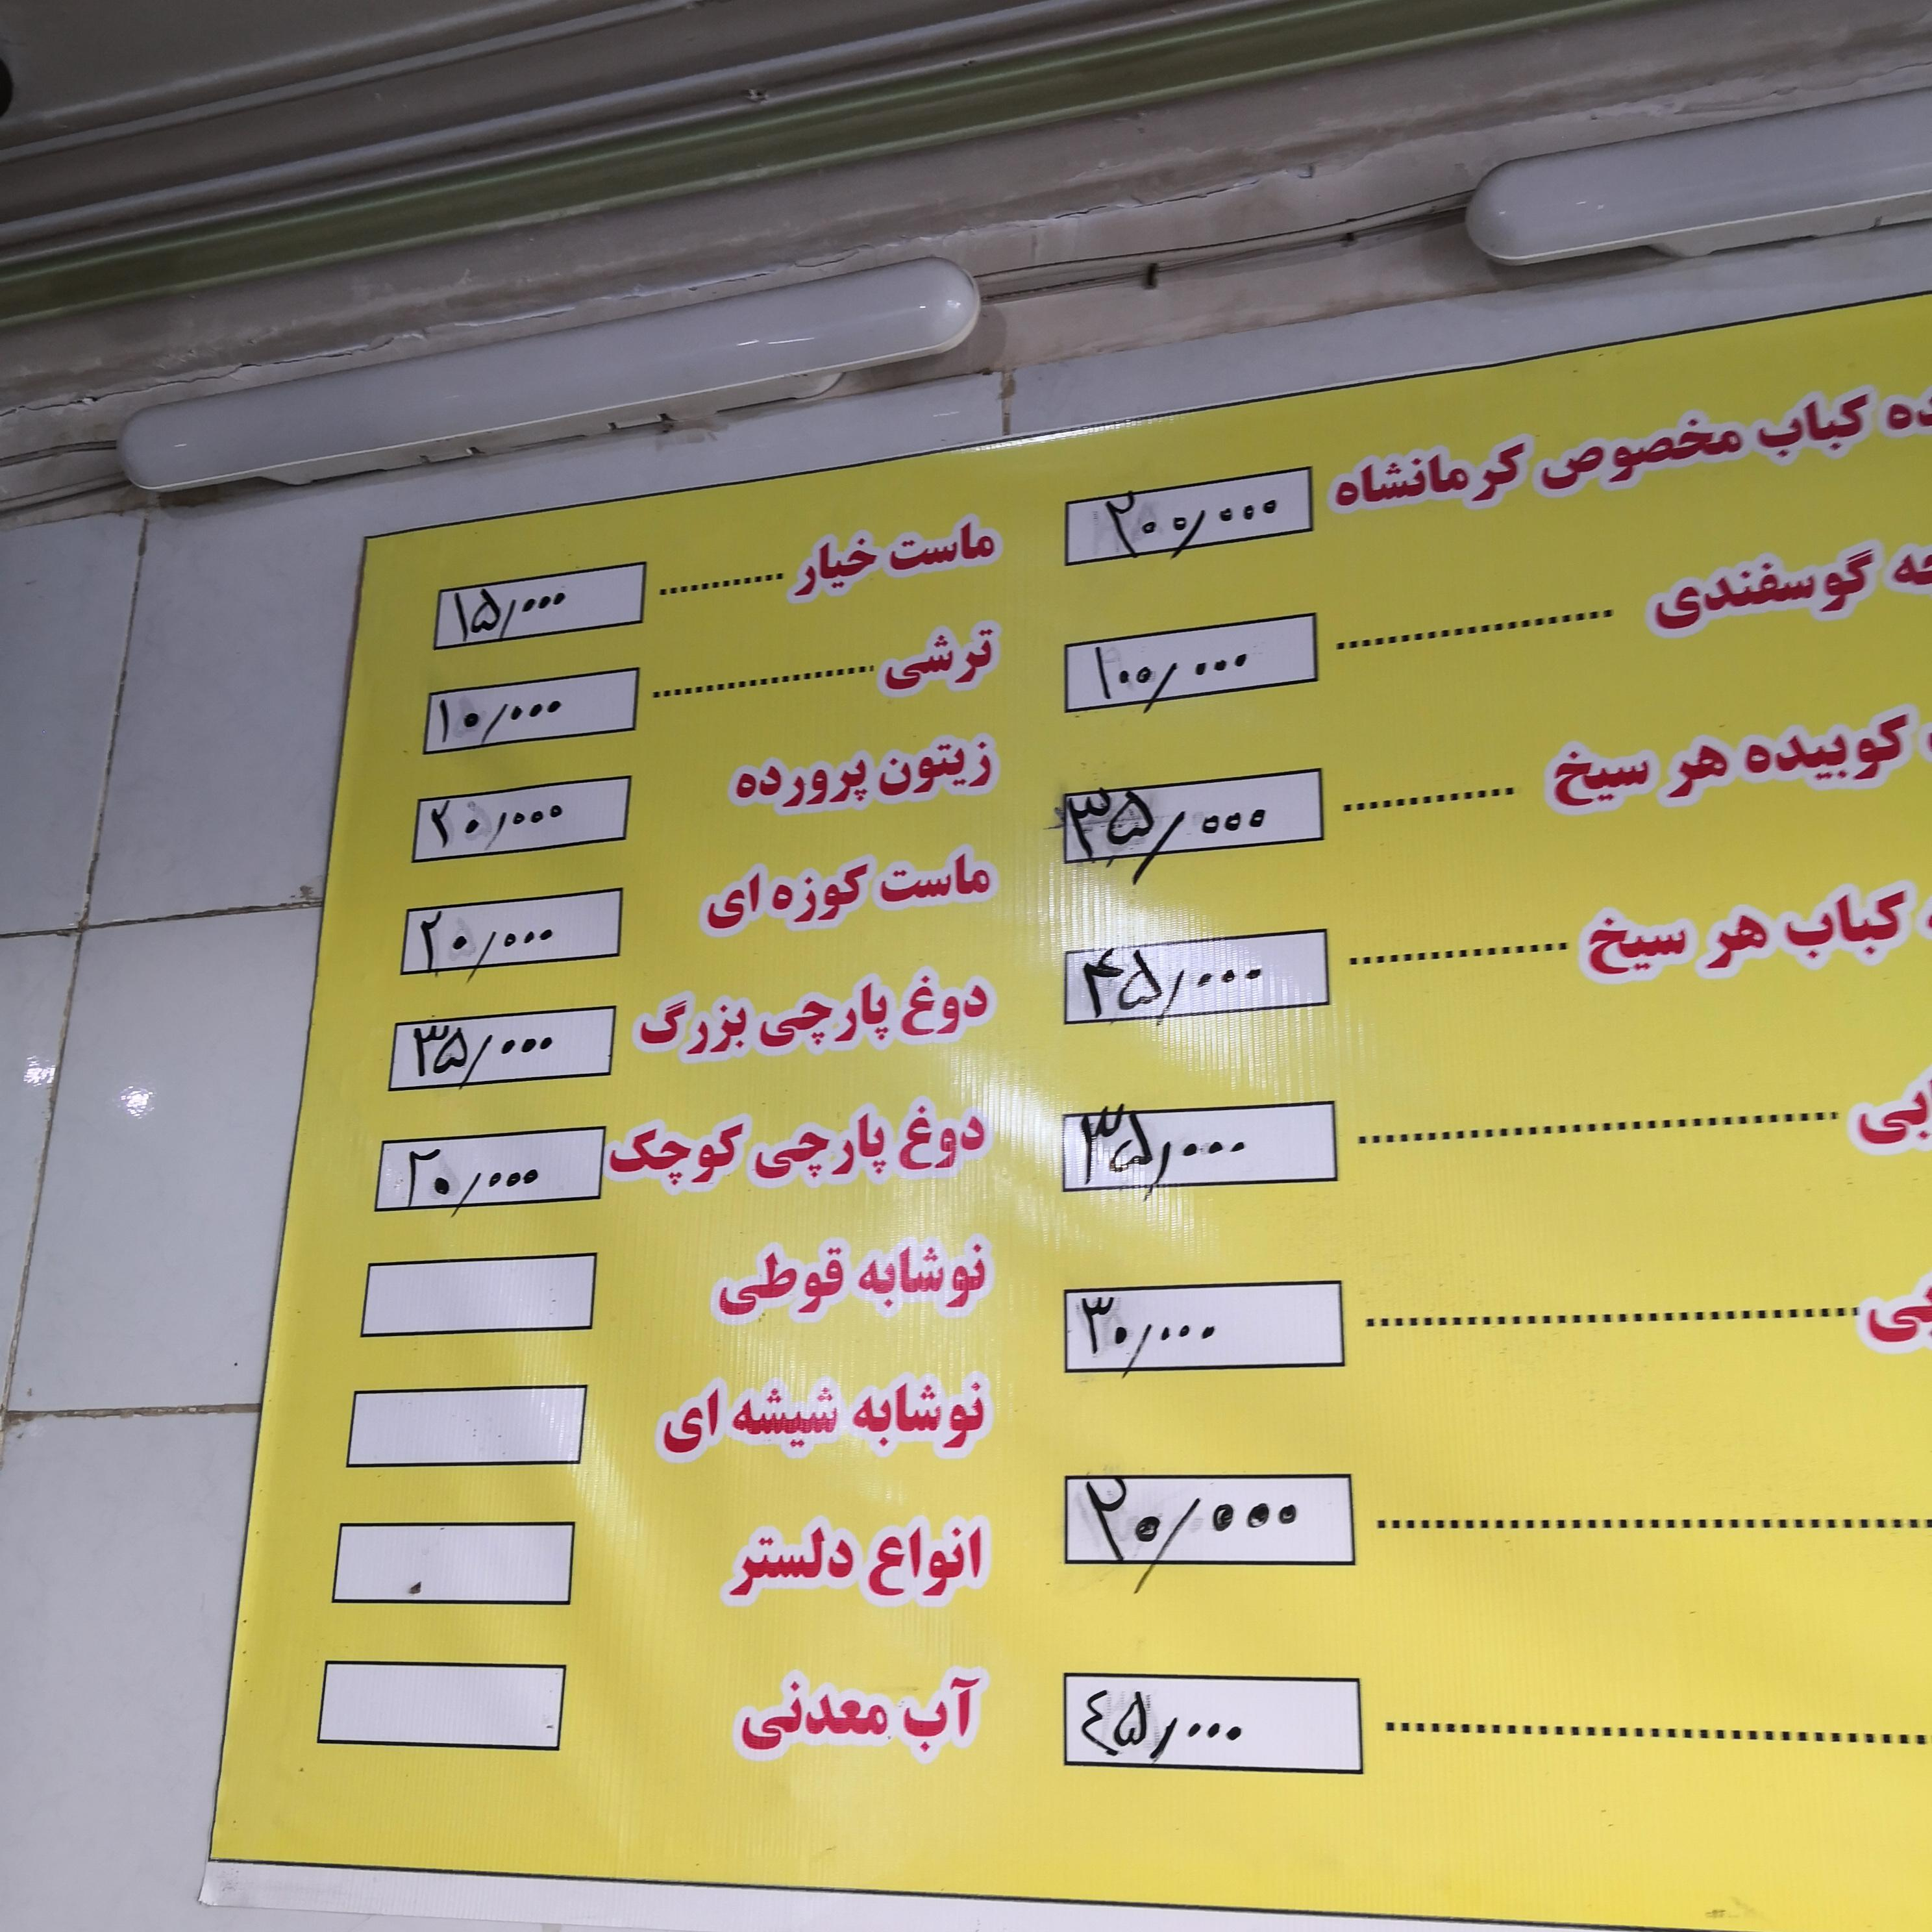 کباب مخصوص کرمانشاه ۲۰۰/۰۰۰
گوسفندی ........ ۱۰۰/۰۰۰
کوبیده هر سیخ ........ ۳۵/۰۰۰
کباب هر سیخ ........ ۴۵/۰۰۰
........ ۳۵/۰۰۰
........ ۳۰/۰۰۰
........ ۲۰/۰۰۰
........ ۴۵/۰۰۰
ماست خیار ........ ۱۵/۰۰۰
ترشی ........ ۱۰/۰۰۰
زیتون پرورده ۲۰/۰۰۰
ماست کوزه ای ۲۰/۰۰۰
دوغ پارچی بزرگ ۳۵/۰۰۰
دوغ پارچی کوچک ۲۰/۰۰۰
نوشابه قوطی
نوشابه شیشه ای
انواع دلستر
آب معدنی